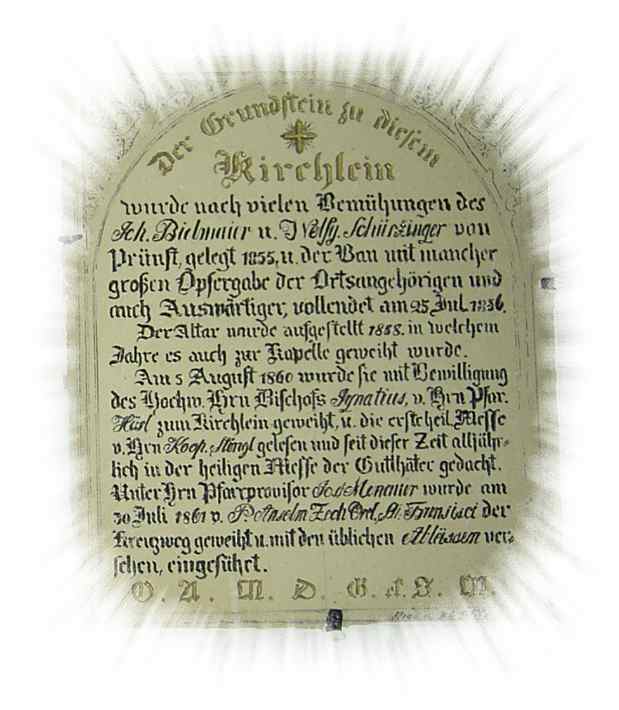 Der Grundstein zu diesem
Kirchlein
wurde nach vielen Bemühungen des
Joh. Bidmaier u. Wolfg. Schürzinger von
Prünst, gelegt 1855, u. der Bau mit mancher
großen Opfergabe der Ortsangehörigen und
auch Auswärtiger, vollendet am 25 Jul. 1856.
Der Altar wurde aufgestellt 1858. in welchem
Jahre es auch zur Kapelle geweiht wurde.
Am 5 August 1860 wurde sie mit Bewilligung
des Hochw. Hrn Bischofs Ignatius, v. Hrn Pfar.
zum Kirchlein geweiht, u. die erste heil. Messe
v. Hrn Koop. gelesen und seit dieser Zeit alljähr-
lich in der heiligen Messe der Gutthäter gedacht.
Unter Hrn Pfarrprovisor Jos. wurde am
30 Juli 1861 v. P. Anselm Zech Ord. St. Franzisci der
Kreuzweg geweiht u. mit den üblichen Ablässen ver-
sehen, eingeführt.
O. A. M. D. G. e. S. M.